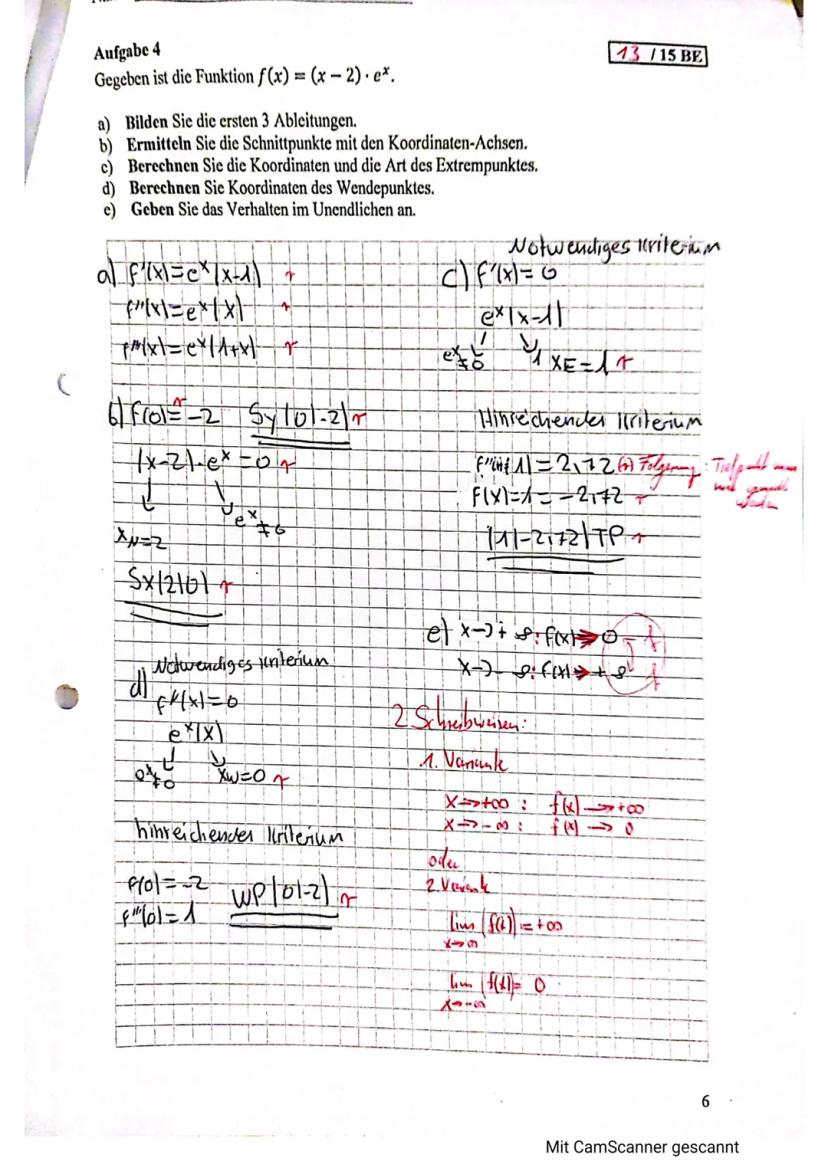 Aufgabe 4
13 / 15 BE
Gegeben ist die Funktion f(x) = (x − 2) · eˣ.
a) Bilden Sie die ersten 3 Ableitungen.
b) Ermitteln Sie die Schnittpunkte mit den Koordinaten-Achsen.
c) Berechnen Sie die Koordinaten und die Art des Extrempunktes.
d) Berechnen Sie Koordinaten des Wendepunktes.
e) Geben Sie das Verhalten im Unendlichen an.
a) f'(x)=eˣ(x-1) r
f''(x)=eˣ(x) r
f'''(x)=eˣ(1+x) r
b) f(0)=-2 r Sy(0|-2) r
(x-2)·eˣ=0 r
eˣ≠0
xN=2
Sx(2|0) r
Notwendiges Kriterium
c) f'(x)=0
eˣ(x-1)
eˣ≠0 1 xE=1 r
Hinreichendes Kriterium
(1)=2,72 (r) Folgerung: Tiefpunkt
f(x)=1=-2,72 r
(1|-2,72) TP r
d) Notwendiges Kriterium
f''(x)=0
eˣ(x)
≠0 xW=0 r
hinreichendes Kriterium
f(0)=-2
f'''(0)=1
WP(0|-2) r
e) x→+∞: f(x)→0 f
x→-∞: f(x)→+∞ f
2 Schreibweisen:
1. Variante
x→+∞ : f(x)→+∞
x→-∞ : f(x)→0
oder
2. Variante
lim (f(x))=+∞
x→∞
lim (f(x))= 0
x→-∞
6
Mit CamScanner gescannt